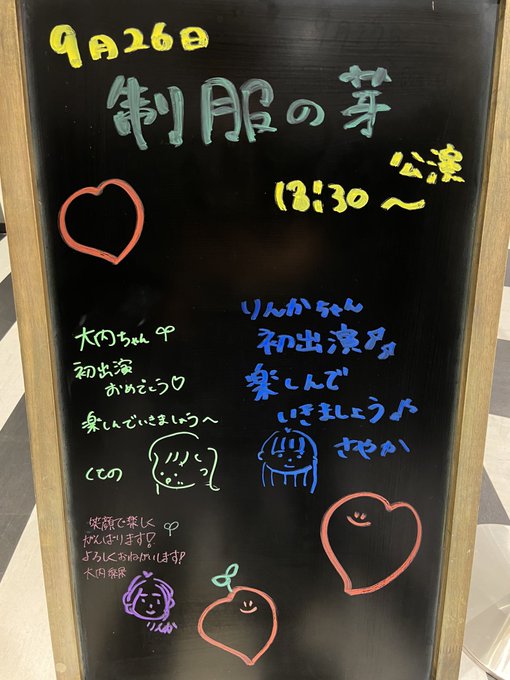 9月26日
制服の芽
公演
18:30〜
りんかちゃん
初出演
楽しんで
いきましょう♪
さやか
大内ちゃん
初出演
おめでとう♡
楽しんでいきましょう〜
くもの
笑顔で楽しく
がんばります♡
よろしくおねがいします!
大内
りんか